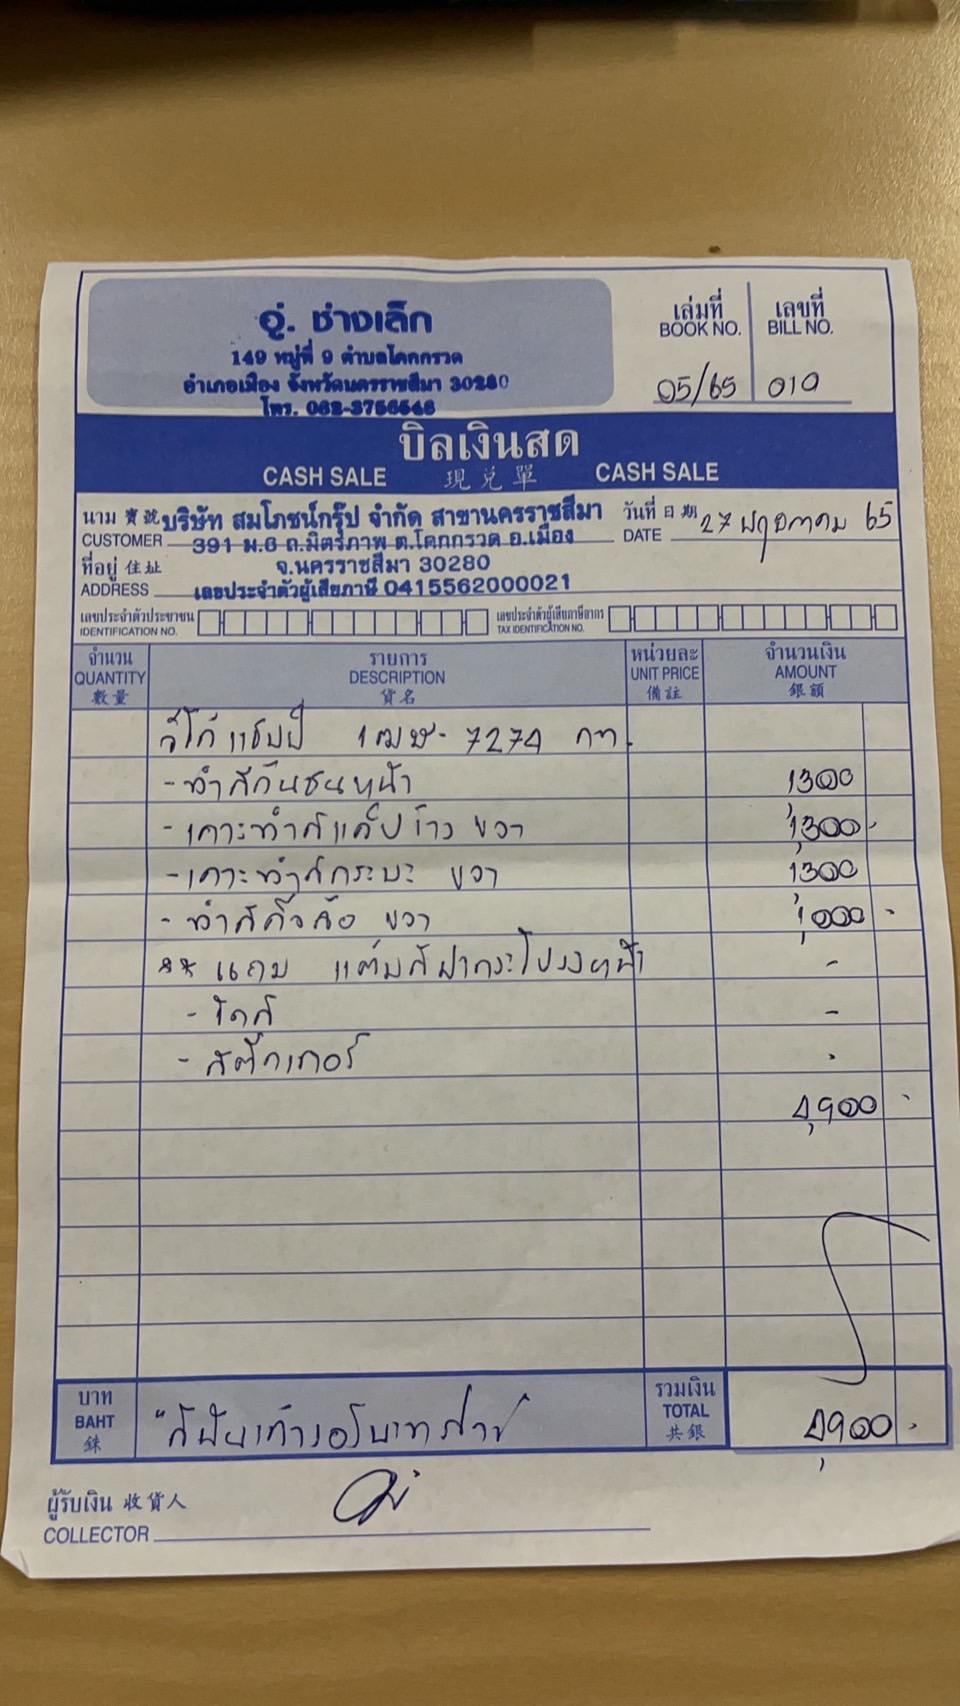 อู่. ช่างเล็ก
149 หมู่ที่ 9 ตำบลโคกกรวด
อำเภอเมือง จังหวัดนครราชสีมา 30280
โทร. 062-3756546
เล่มที่ เลขที่
BOOK NO. BILL NO.
05/65 010
บิลเงินสด
CASH SALE 現兌單 CASH SALE
นาม 寶號 บริษัท สมโภชน์กรุ๊ป จำกัด สาขานครราชสีมา วันที่ 日期 27 พฤษภาคม 65
CUSTOMER 391 ม.6 ถ.มิตรภาพ ต.โคกกรวด อ.เมือง DATE
ที่อยู่ 住址 จ.นครราชสีมา 30280
ADDRESS เลขประจำตัวผู้เสียภาษี 0415562000021
เลขประจำตัวประชาชน เลขประจำตัวผู้เสียภาษีอากร
IDENTIFICATION NO. TAX IDENTIFICATION NO.
จำนวน รายการ หน่วยละ จำนวนเงิน
QUANTITY DESCRIPTION UNIT PRICE AMOUNT
數量 貨名 備註 銀額
7274 กท.
- ทำสีกันชนหน้า 1,300
- เคาะทำสีแค็ปข้าง ขวา 1,300.-
- เคาะทำสีกระบะ ขวา 1,300
- ทำสีคิ้วล้อ ขวา 1,000 -
** แถม แต้มสีฝากระโปรงหน้า -
- ขัดสี -
- สติ๊กเกอร์ -
4,900 -
บาท รวมเงิน
BAHT "สี่พันเก้าร้อยบาทถ้วน" TOTAL 4,900 -
銖 共銀
ผู้รับเงิน 收貨人
COLLECTOR